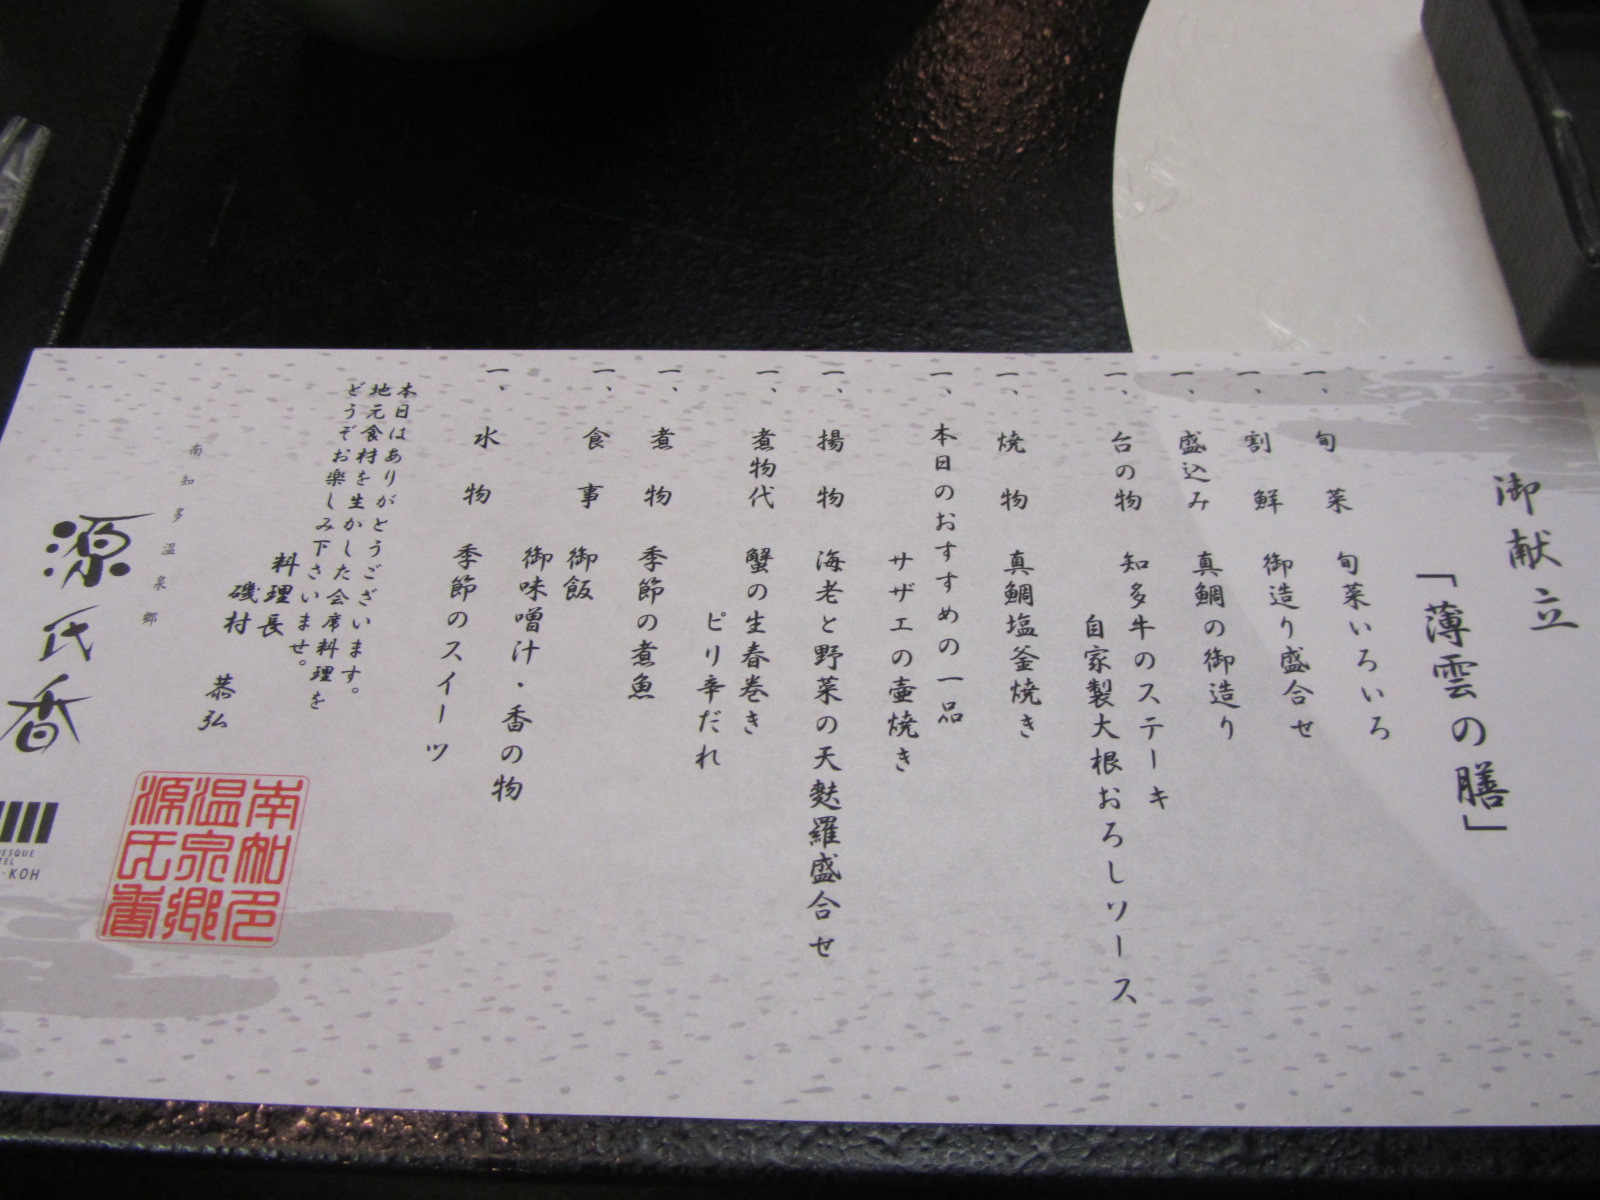 御献立
「薄雲の膳」
一、旬菜 旬菜いろいろ
一、割鮮 御造り盛合せ
一、盛込み 真鯛の御造り
一、台の物 知多牛のステーキ
自家製大根おろしソース
一、焼物 真鯛塩釜焼き
一、本日のおすすめの一品
サザエの壷焼き
一、揚物 海老と野菜の天麩羅盛合せ
一、煮物代 蟹の生春巻き
ピリ辛だれ
一、煮物 季節の煮魚
一、食事 御飯
御味噌汁・香の物
一、水物 季節のスイーツ
本日はありがとうございます。
地元食材を生かした会席料理を
どうぞお楽しみ下さいませ。
料理長
磯村 恭弘
南知多温泉郷
源氏香
南知多
温泉郷
源氏香
ESQUE
TEL
・KOH